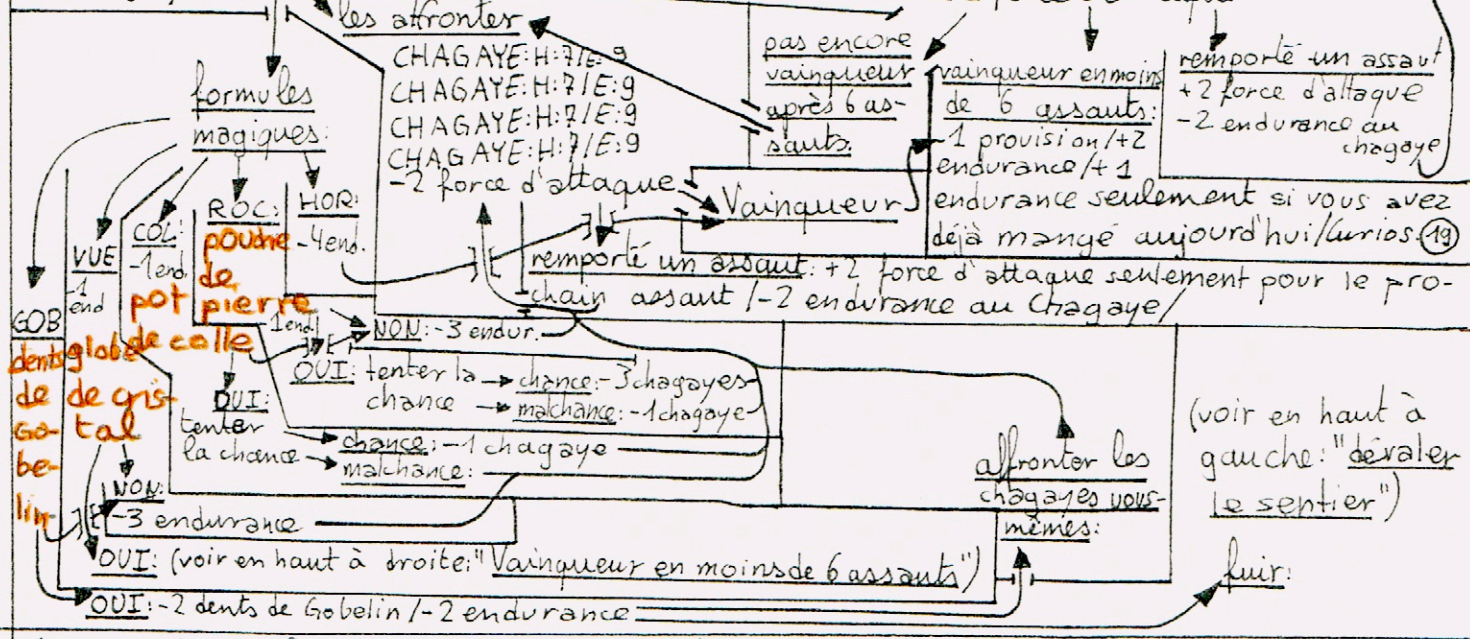 les affronter
CHAGAYE:H:7/E:9
CHAGAYE:H:7/E:9
CHAGAYE:H:7/E:9
CHAGAYE:H:7/E:9
-2 force d'attaque
pas encore
vainqueur
après 6 as-
sauts.
vainqueur en moins
de 6 assauts:
-1 provision/+2
endurance/+1
endurance seulement si vous avez
déjà mangé aujourd'hui/Curios.19
remporté un assaut
+2 force d'attaque
-2 endurance au
chagaye
Vainqueur
remporté un assaut: +2 force d'attaque seulement pour le pro-
chain assaut /-2 endurance au Chagaye/
formules
magiques:
GOB
dents
de
Go-
be-
lin
VUE
-1
end
globe
de cris-
tal
COL:
-1end.
pot
de colle
ROC:
poudre
de
pierre
-1end.
HOR:
-4end.
NON:-3 endur.
OUI: tenter la
chance
chance:-3chagayes
malchance:-1chagaye
OUI:
tenter
la chance
chance:-1 chagaye
malchance:
NON:
-3 endurance
OUI: (voir en haut à droite:"Vainqueur en moins de 6 assauts")
OUI:-2 dents de Gobelin/-2 endurance
affronter les
chagayes vous-
mêmes:
(voir en haut à
gauche:"dévaler
le sentier")
fuir: